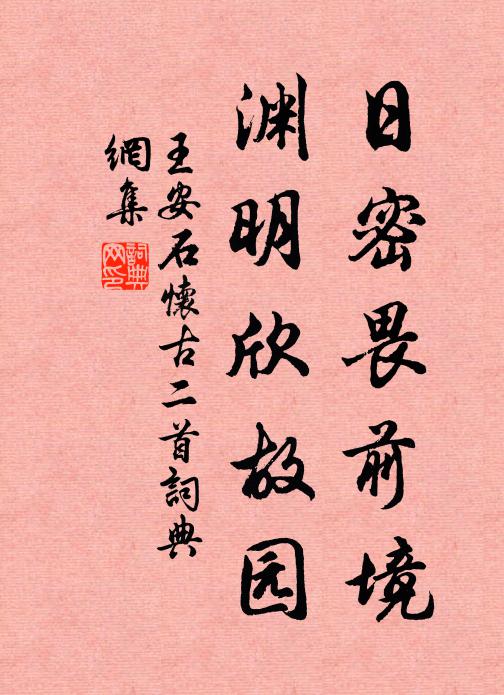 日密畏前境
渊明欣故园
王安石懷古二首詞典
網集
詞典
网印